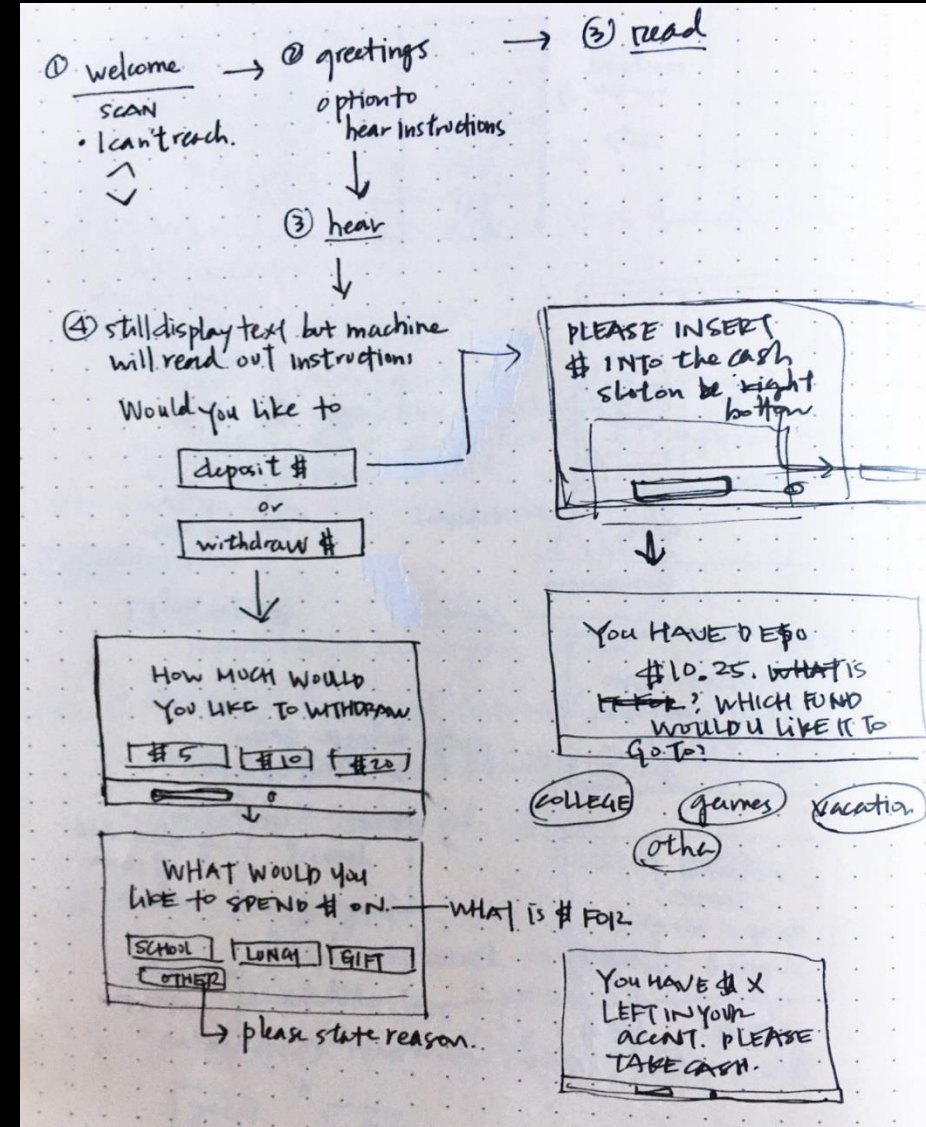 ① welcome → ② greetings → ③ read
SCAN
• I can't reach.
option to
hear instructions
③ hear
④ still display text but machine
will read out instructions
Would you like to
deposit $
or
withdraw $
HOW MUCH WOULD
YOU LIKE TO WITHDRAW
$5 $10 $20
WHAT WOULD YOU
LIKE TO SPEND $ ON
WHAT IS $ FOR
SCHOOL LUNCH GIFT
OTHER
please state reason.
PLEASE INSERT
$ INTO the cash
slot on be right
bottom.
YOU HAVE DEPO
$10.25. WHAT IS
IT FOR? WHICH FUND
WOULD U LIKE IT TO
GO TO?
COLLEGE games vacation
other
YOU HAVE $ X
LEFT IN YOUR
ACCNT. PLEASE
TAKE CASH.